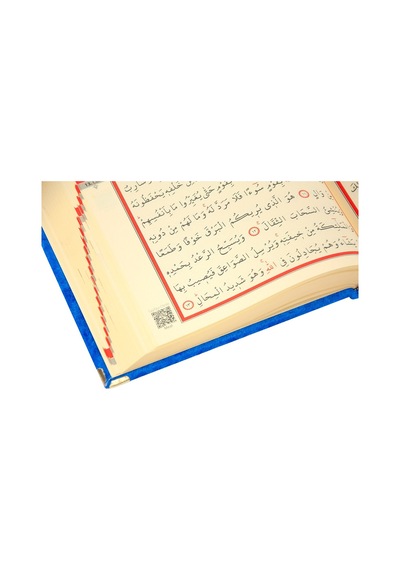 سَارِبٌ
مِنْ خَلْفِهِ يَحْفَظُونَهُ
بِقَوْمٍ حَتّٰى يُغَيِّرُوا مَا بِاَنْفُسِهِمْ
بِقَوْمٍ سُٓوءًا فَلَا مَرَدَّ لَهُ وَمَا لَهُمْ مِنْ دُونِهِ
وَالٍ ﴿١١﴾ هُوَ الَّذٖي يُرٖيكُمُ الْبَرْقَ خَوْفًا وَطَمَعًا
يُنْشِئُ السَّحَابَ الثِّقَالَ ﴿١٢﴾ وَيُسَبِّحُ الرَّعْدُ بِحَمْدِهٖ
مَلٰٓئِكَةُ مِنْ خٖيفَتِهٖ وَيُرْسِلُ الصَّوَاعِقَ فَيُصٖيبُ بِهَا
يَشَٓاءُ وَهُمْ يُجَادِلُونَ فِي اللّٰهِ وَهُوَ شَدٖيدُ الْمِحَالِ ﴿١٣﴾